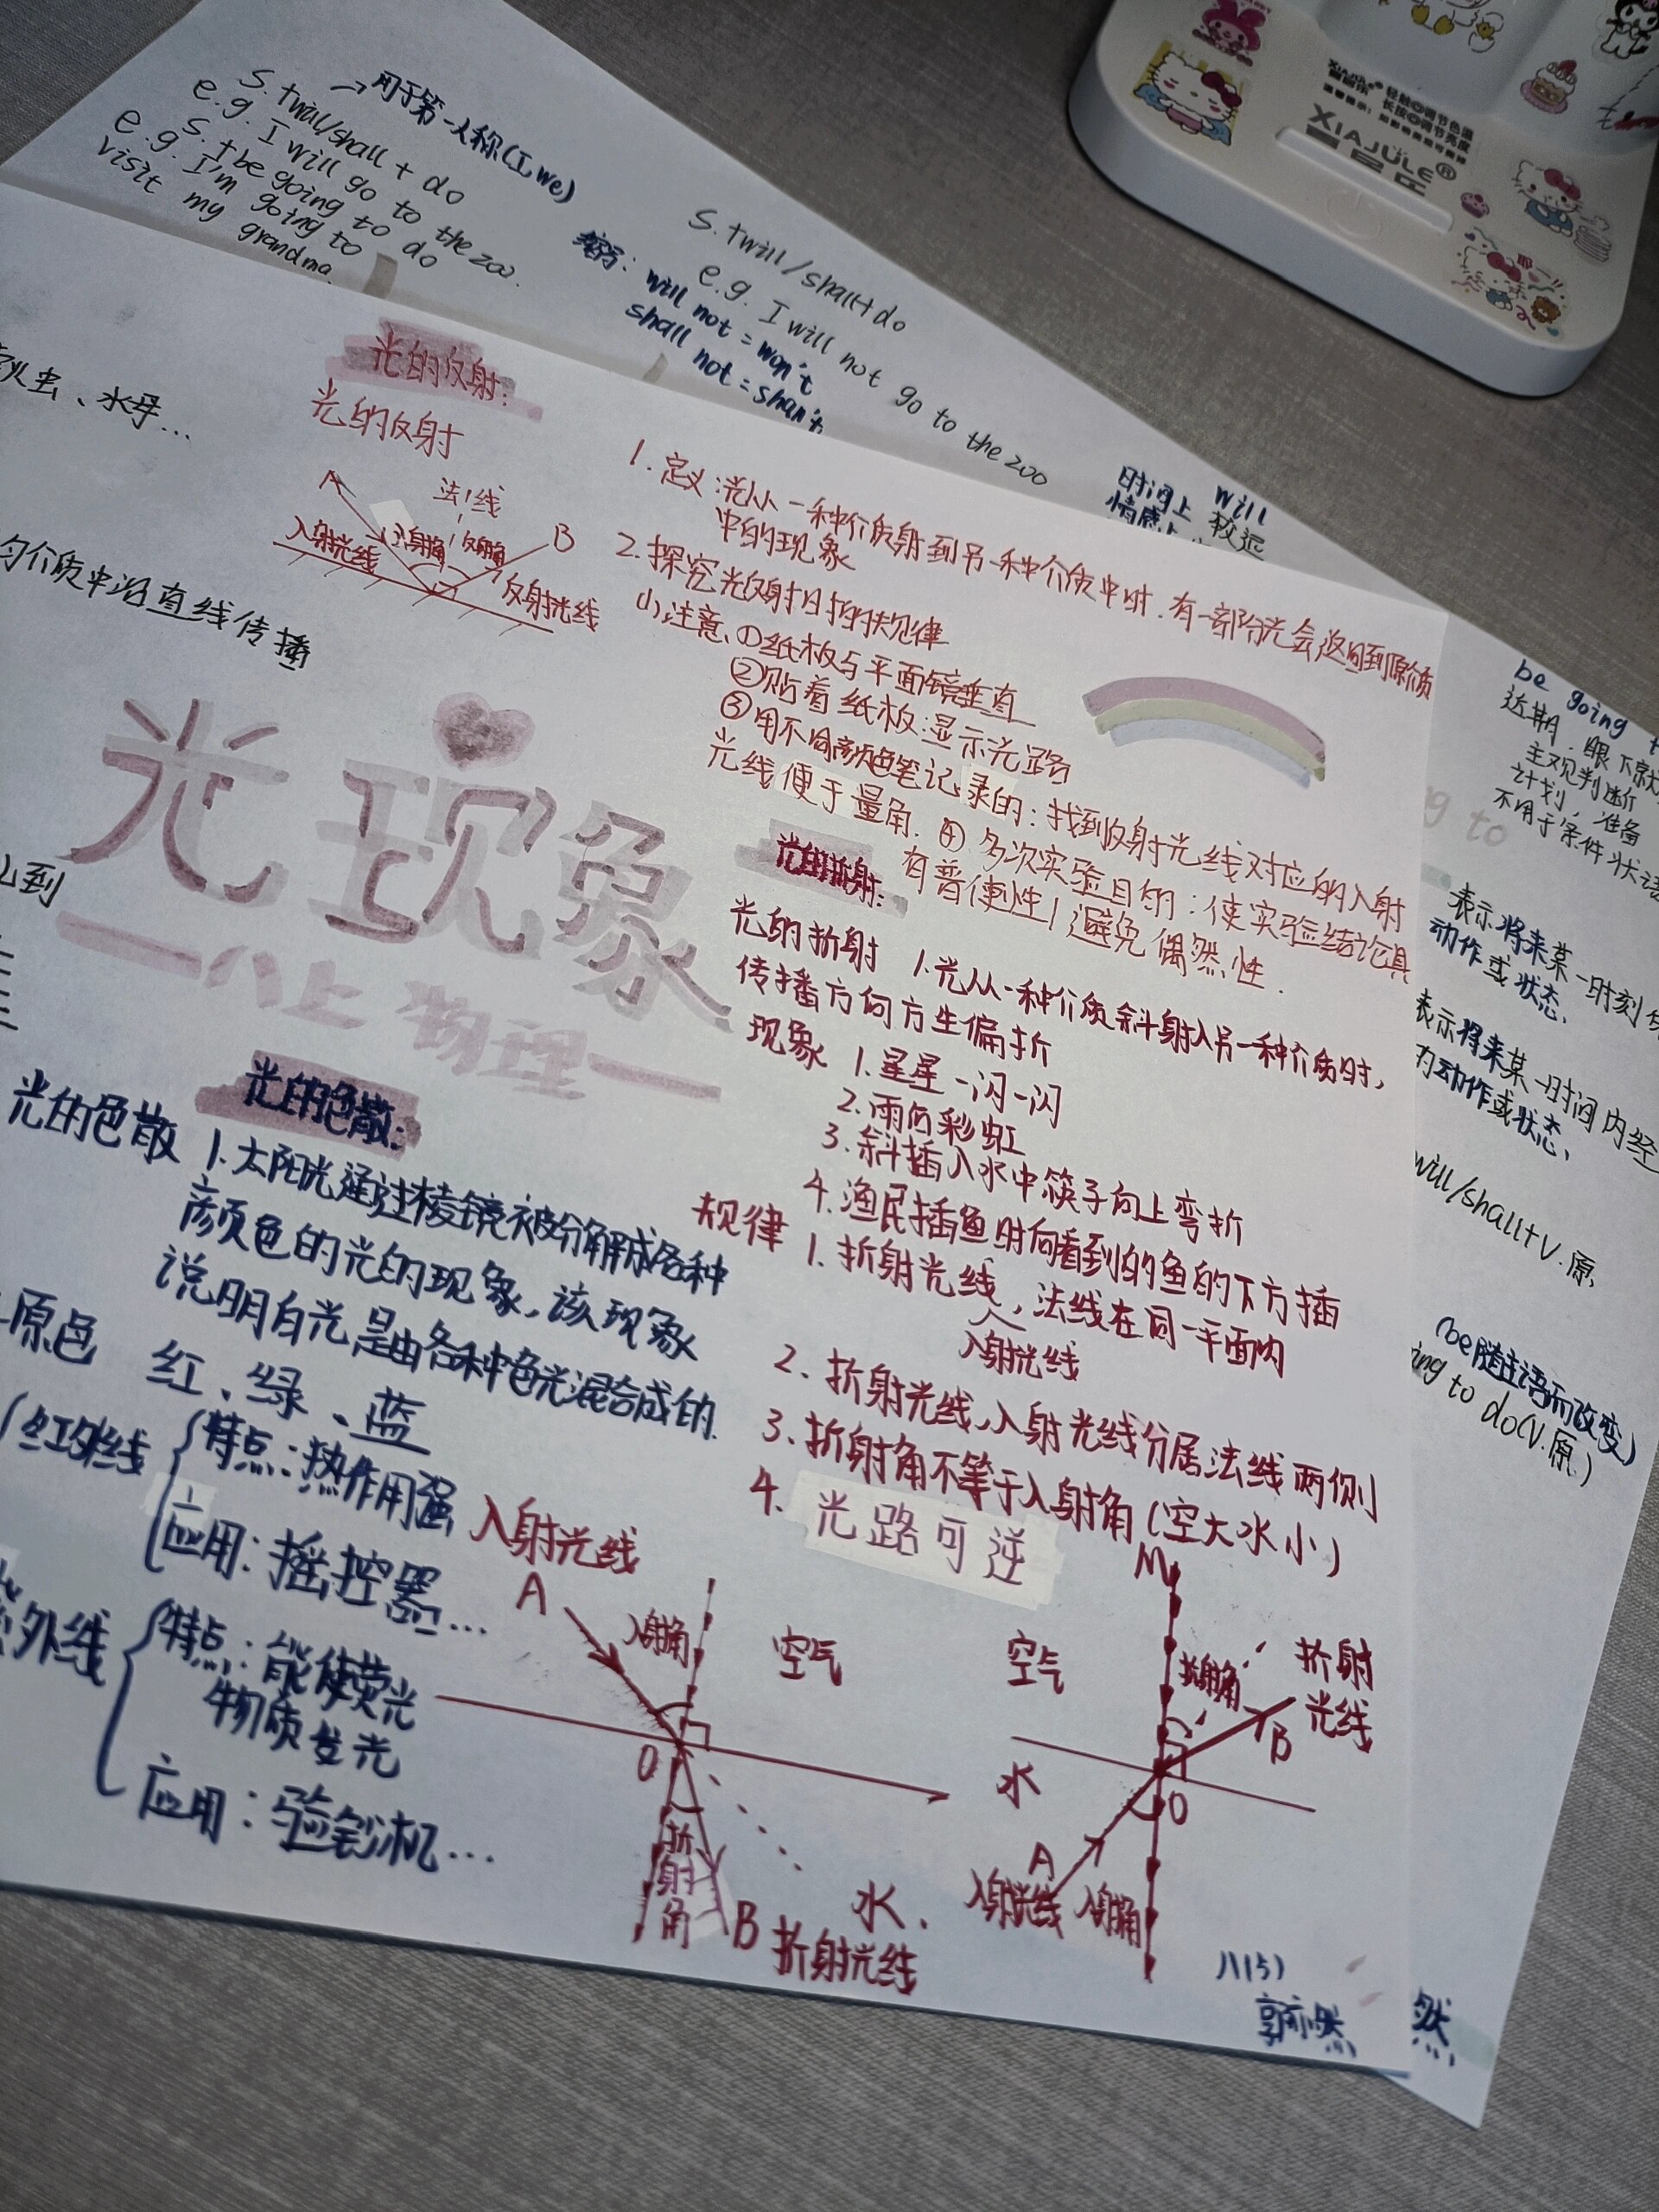 →用于第一人称(I,we)
S.+will/shall + do
e.g. I will go to the zoo.
S.+be going to do
e.g. I'm going to
visit my grandma.
S.+will/shall+do
e.g. I will not go to the zoo
缩写: will not = won't
shall not = shan't
XIAJULE®
轻触⏻调节色温
长按⏻调节亮度
will
时间上 较远
be going
近期、眼下就
主观判断
计划,准备
不用于条件状语
表示将来某一时刻
动作或状态,
表示将来某一时间内经
动作或状态,
will/shall+V.原,
(be随主语而改变)
ing to do(V.原)
火虫、水母...
匀介质中沿直线传播
光的反射:
光的反射
A
法线
B
入射光线
入射角
反射角
反射光线
1.定义:光从一种介质射到另一种介质中时.有一部分光会返回到原介质
中的现象
2.探究光反射时的规律
(1)注意、①纸板与平面镜垂直
②贴着纸板:显示光路
③用不同颜色笔记录的:找到反射光线对应的入射
光线便于量角. ④多次实验目的:使实验结论具
有普便性/避免偶然性.
光现象
一八上物理一
光的折射:
光的折射 1.光从一种介质斜射入另一种介质时,
传播方向方生偏折
现象 1.星星一闪一闪
2.雨后彩虹
3.斜插入水中筷子向上弯折
4.渔民插鱼时向看到的鱼的下方插
规律 1.折射光线,法线在同一平面内
入射光线
2.折射光线,入射光线分居法线两侧
3.折射角不等于入射角(空大水小)
4.光路可逆
光的色散:
光的色散 1.太阳光通过棱镜被分解成各种
颜色的光的现象,该现象
说明白光是由各种色光混合成的.
原色 红、绿、蓝
红外线
特点:热作用强
应用:摇控器...
外线
特点:能使荧光
物质发光
应用:验钞机...
入射光线
A
入射角
空气
O
折射角
B
折射光线
水
M
空气
折射角
折射光线
B
水
O
A
入射光线
入射角
然